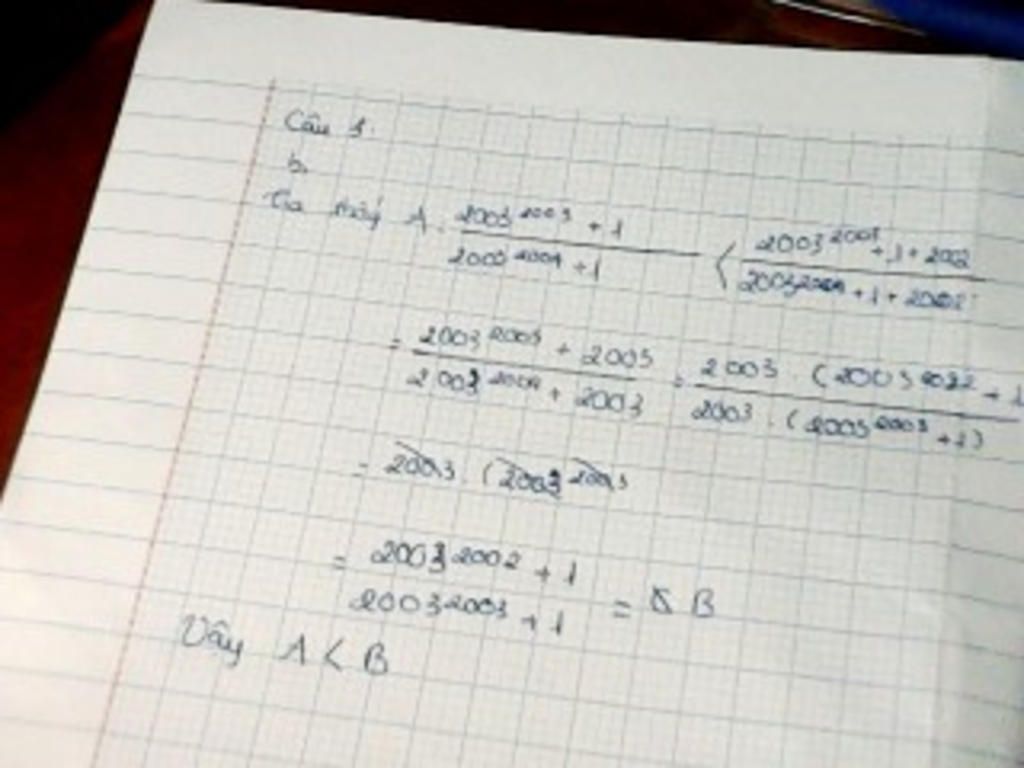 Câu 1.
b.
Ta thấy A = (2003^2003 + 1)/(2003^2004 + 1) < (2003^2003 + 1 + 2002)/(2003^2004 + 1 + 2002)
= (2003^2003 + 2003)/(2003^2004 + 2003) = (2003 . (2003^2002 + 1)/(2003 . (2003^2003 + 1)
= 2003 . (2003^2003
= (2003^2002 + 1)/(2003^2003 + 1) = B
Vậy A < B